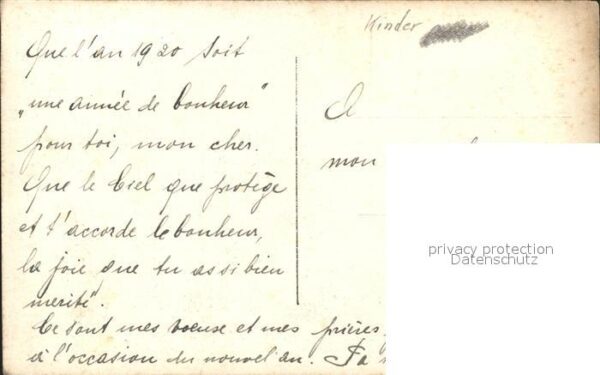 Kinder
Que l'an 1920 soit
„une année de bonheur"
pour toi, mon cher.
Que le Ciel que protège
et t'accorde le bonheur,
la joie que tu as si bien
merité".
Ce sont mes voeuse et mes prières,
à l'occasion du nouvel an. Ta
A
mon
privacy protection
Datenschutz